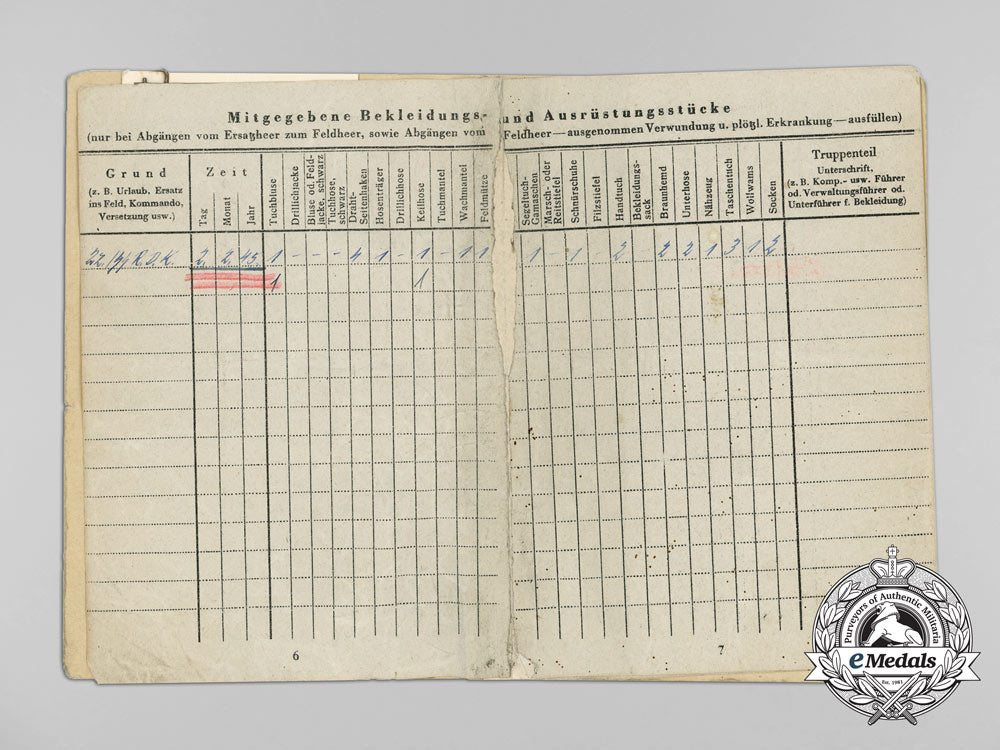 Mitgegebene Bekleidungs- und Ausrüstungsstücke
(nur bei Abgängen vom Ersatzheer zum Feldheer, sowie Abgängen vom Feldheer — ausgenommen Verwundung u. plötzl. Erkrankung — ausfüllen)
Grund
(z. B. Urlaub, Ersatz
ins Feld, Kommando,
Versetzung usw.)
Zeit
Tag
Monat
Jahr
Tuchbluse
Drillichjacke
Bluse od. Feld-
jacke, schwarz
Tuchhose,
schwarz
Draht-
Seitenhaken
Hosenträger
Drillichhose
Keilhose
Tuchmantel
Wachmantel
Feldmütze
Segeltuch-
Gamaschen
Marsch- oder
Reitstiefel
Schnürschuhe
Filzstiefel
Handtuch
Bekleidungs-
sack
Braunhemd
Unterhose
Nähzeug
Taschentuch
Wollwams
Socken
Truppenteil
Unterschrift,
(z. B. Komp.- usw. Führer
od. Verwaltungsführer od.
Unterführer f. Bekleidung)
2. 2. 45. 1 - - - 4 1 - 1 - 1 1 1 - 1 - 2 - 2 2 1 3 1 2
1 1
6
7
Purveyors of Authentic Militaria
eMedals
Est. 1981